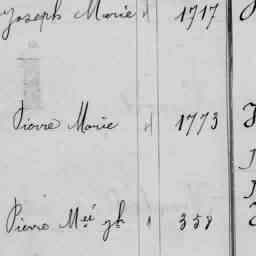 Joseph Marie 1717
Pierre Marie 1773
Pierre 358